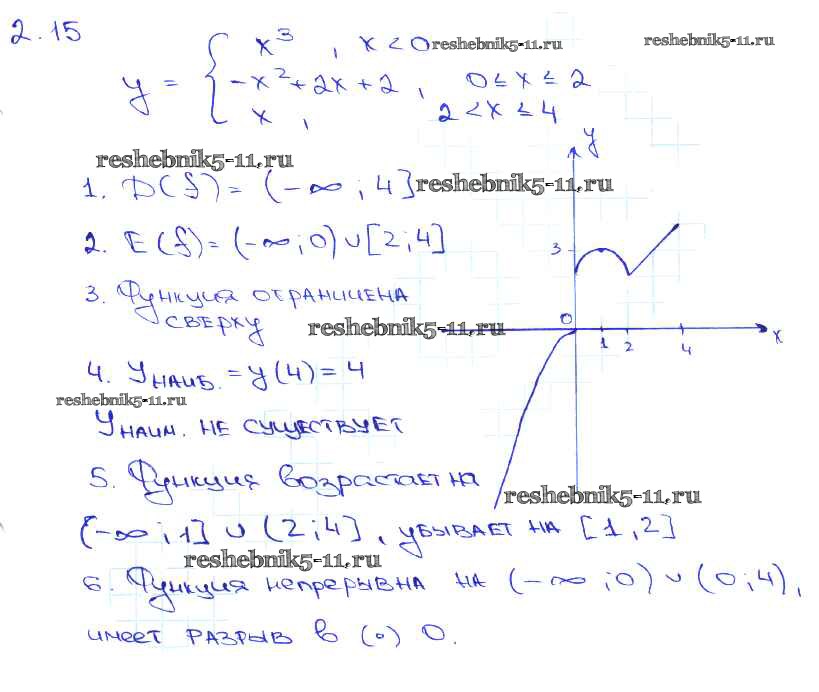 2.15
y = { x³ , x < 0 reshebnik5-11.ru reshebnik5-11.ru
-x² + 2x + 2 , 0 ≤ x ≤ 2
x , 2 < x ≤ 4
reshebnik5-11.ru
1. D(f) = (-∞ ; 4] reshebnik5-11.ru
2. E(f) = (-∞ ; 0) ∪ [2 ; 4]
3. Функция ограничена
сверху reshebnik5-11.ru
4. Yнаиб. = y(4) = 4
reshebnik5-11.ru
Yнаим. не существует
5. Функция возрастает на
reshebnik5-11.ru
(-∞ ; 1] ∪ (2 ; 4] , убывает на [1 , 2]
reshebnik5-11.ru
6. Функция непрерывна на (-∞ ; 0) ∪ (0 ; 4) ,
имеет разрыв в (•) 0.
y
3
0
x
1 2 4